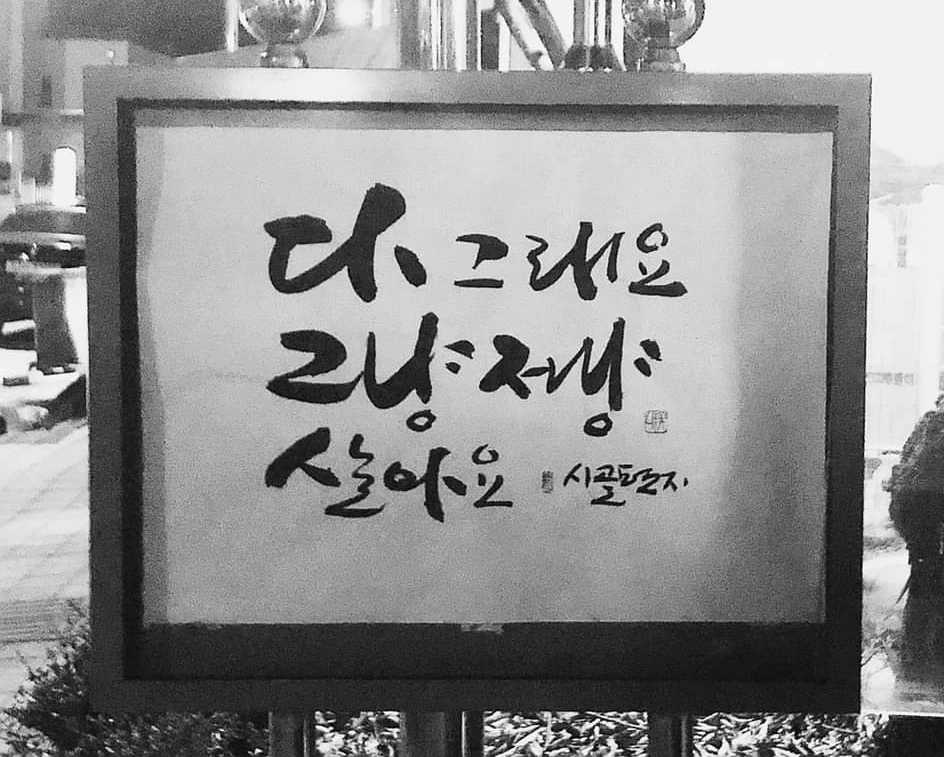 다 그래요
그냥저냥
살아요 시골편지